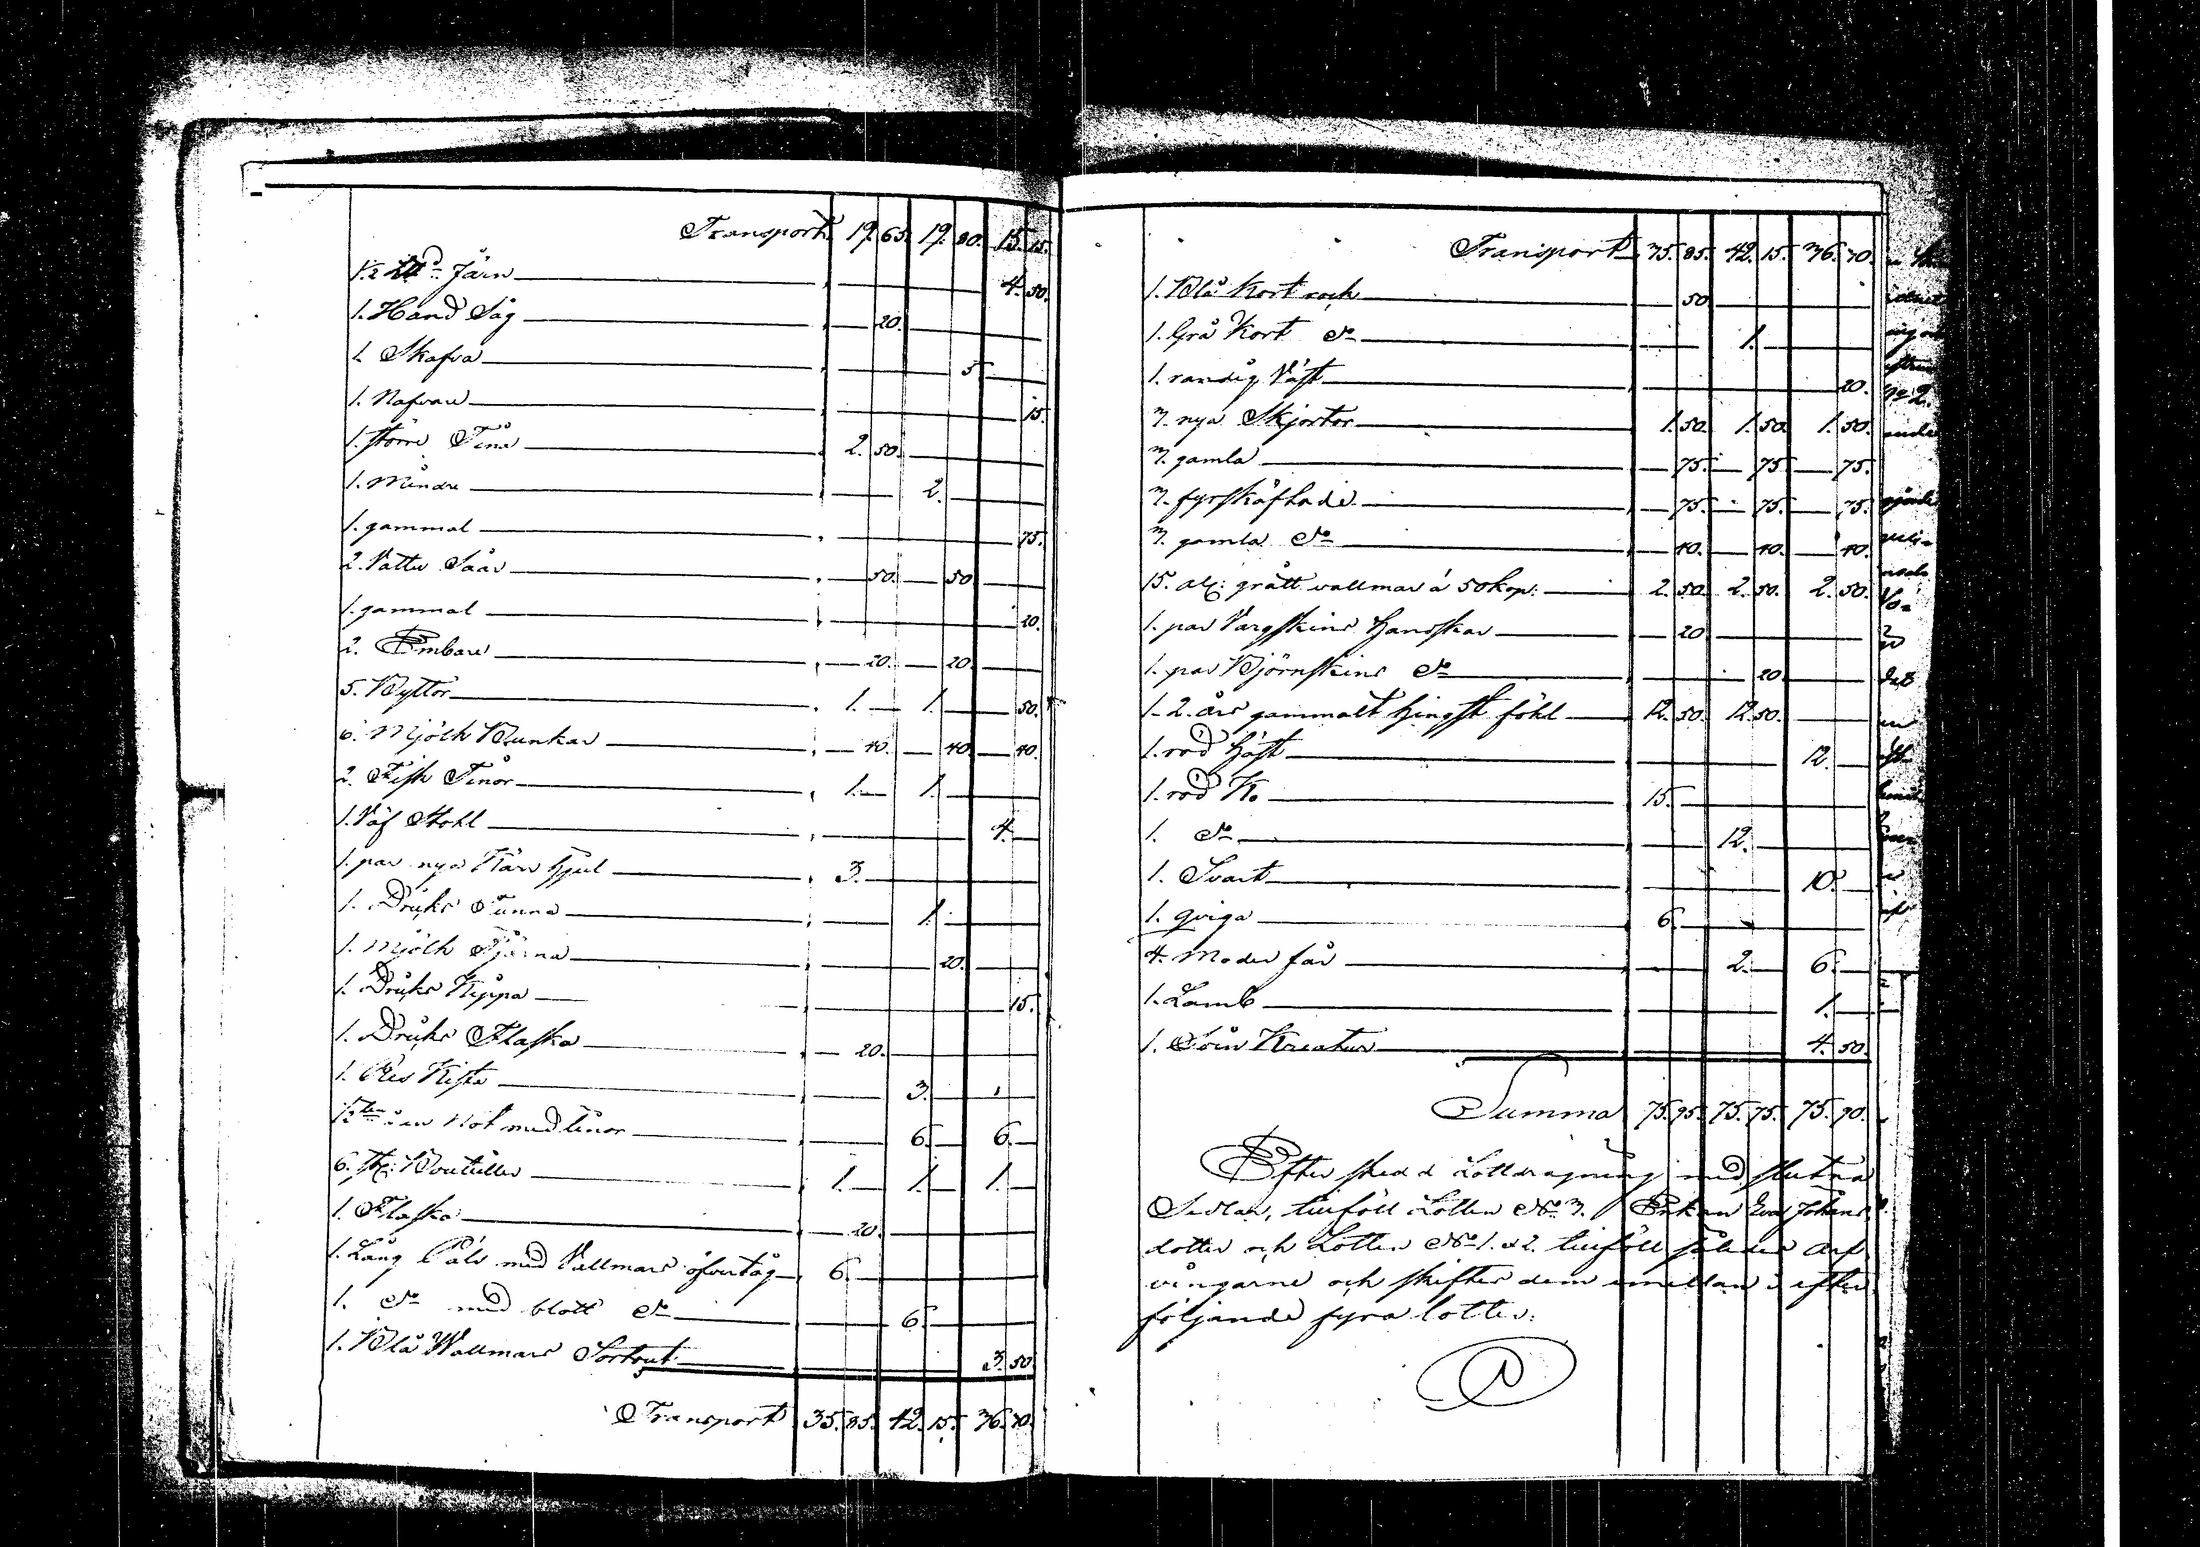 Transport 19. 65. 19. 80. 15. 15.
1/2 Järn 4. 50.
1. Hand Såg 20.
1. Skafva 5
1. Nafvare 15.
1. större Tina 2. 50.
1. Mindre 2.
1. gammal 75.
2. Vatten Såar 50. 50
1. gammal 20.
2. Embare 20. 20.
5. Byttor 1. 1. 50.
6. Mjölk Bunkar 40. 40. 40.
2. Fisk Tinor 1. 1.
1. Väf Stohl 4.
1. par nya Kärr hjul 3.
1. Dricks Tunna 1.
1. Mjölk Tjärna 20.
1. Dricks Kippa 15.
1. Dricks Flaska 20.
1. Res Kista 3.
Not med linor 6. 6.
6. st: Boutiller 1. 1. 1.
1. Flaska 20.
1. Lång Päls med Vallmars öfvertåg 6.
1. do med blått do 6.
1. Blå Wallmars Sortout 3. 50
Transport 35. 85. 42. 15. 36. 70.
Transport 35. 85. 42. 15. 36. 70.
1. Blå Kort rock 50
1. Grå Kort do 1.
1. randig Väst 20.
3. nya Skjortor 1. 50. 1. 50. 1. 50.
3. gamla 75. 75. 75.
3. fyrskäftade 75. 75. 75.
3. gamla do 40. 40. 40.
15. al: grått vallmar á 50 kop: 2. 50. 2. 50. 2. 50.
1. par Vargskins Handskar 20
1. par Björnskins do 20
1. 2. års gammalt hingst föhl 12. 50. 12. 50.
1. röd häst 12.
1. röd Ko 15.
1. do 12.
1. Svart 10.
1. qviga 6.
4. Moder får 2. 6.
1. Lamb 1.
1. Svin Kreatur 4. 50.
Summa 75. 95. 75. 75. 75. 90.
Efter skedd Lottdragning med slutna
Sedlar, tillföll Lotten No 3. Enkan Eva Johans
dotter och Lotten No 1. & 2. tillföll således arf
vingarne och skiftes dem emellan i efter
följande fyra lotter.